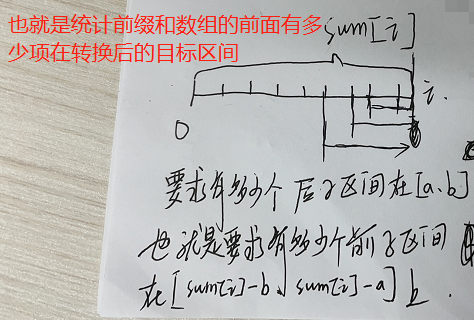 也就是统计前缀和数组的前面有多
少项在转换后的目标区间
sum[i]
i
0
要求有多少个后子区间在[a,b]
也就是要求有多少个前子区间
在[sum[i]-b、sum[i]-a]